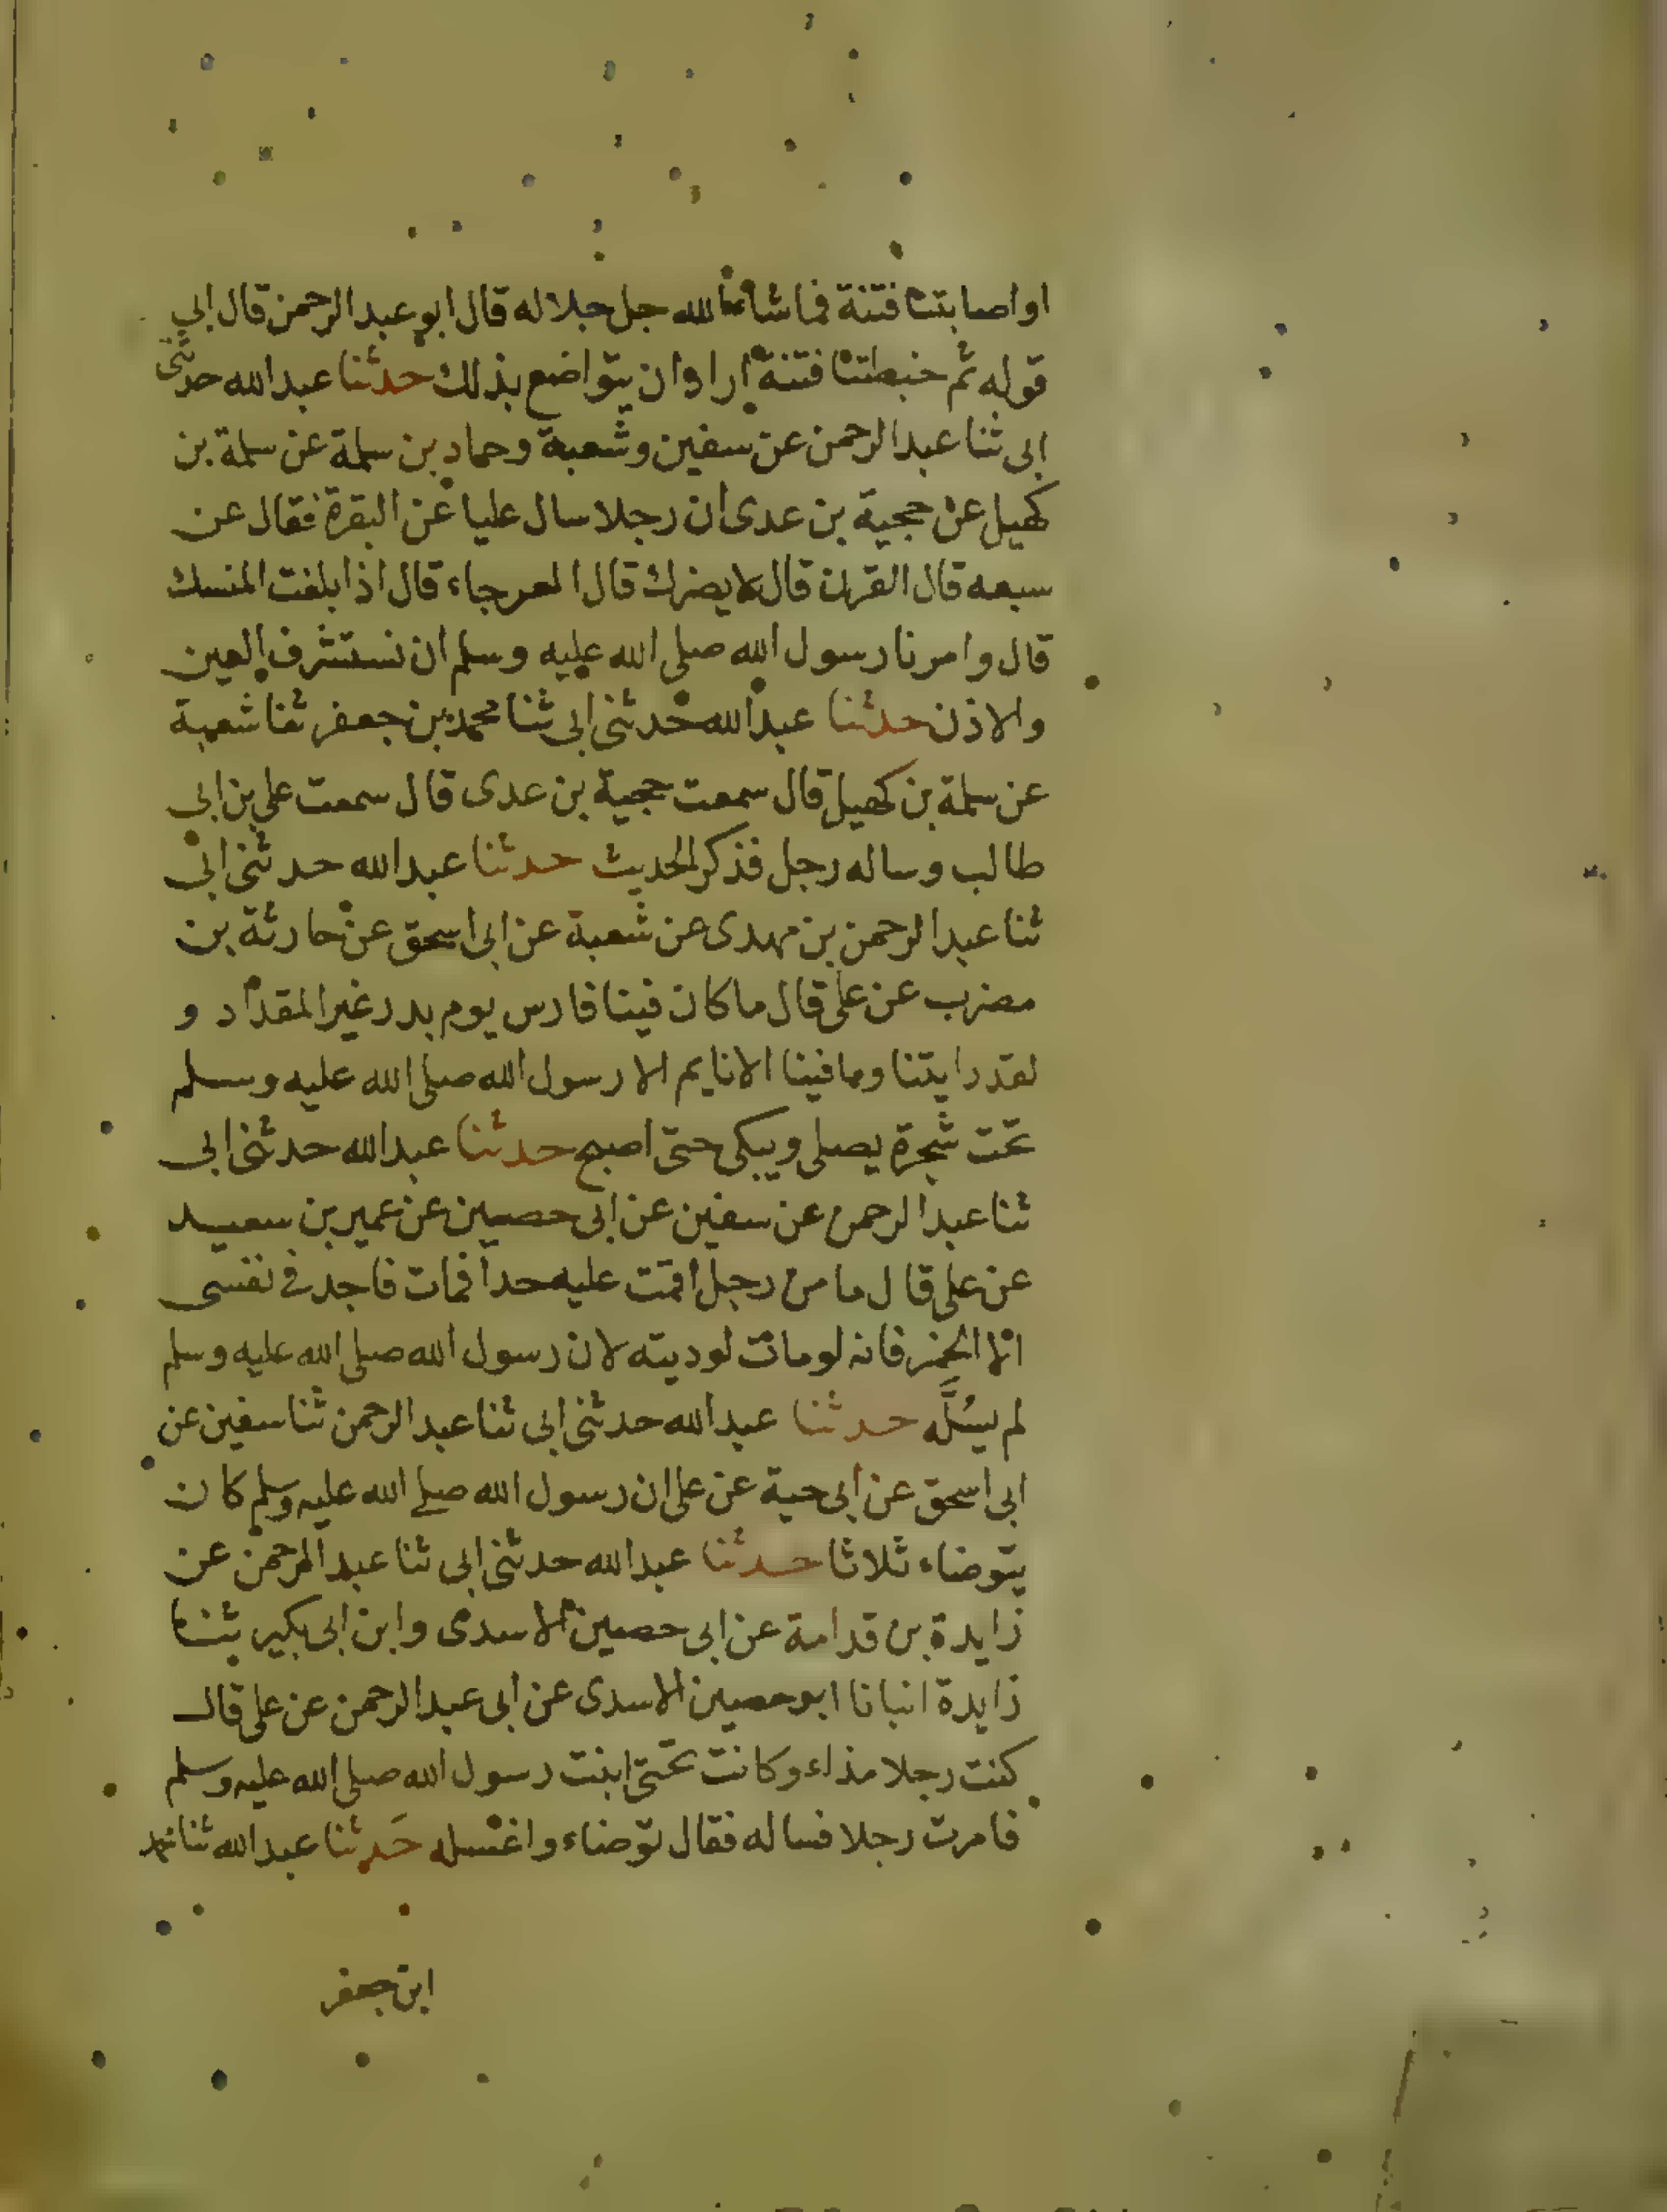 او اصابتنا فتنة فما شاء الله جل جلاله قال ابو عبد الرحمن قال ابي
قوله ثم خبطتنا فتنة اراد ان يتواضع بذلك حدثنا عبد الله حدثني
ابى ثنا عبد الرحمن عن سفين وشعبة وحماد بن سلمة عن سلمة بن
كهيل عن حجية بن عدى ان رجلا سال عليا عن البقرة فقال عن
سبعه قال القرن قال لا يضرك قال العرجاء قال اذا بلغت المنسك
قال وامرنا رسول الله صلى الله عليه وسلم ان نستشرف العين
والاذن حدثنا عبد الله حدثنى ابى ثنا محمد بن جعفر ثنا شعبة
عن سلمة بن كهيل قال سمعت حجية بن عدى قال سمعت على بن ابى
طالب وساله رجل فذكر الحديث حدثنا عبد الله حدثنى ابى
ثنا عبد الرحمن بن مهدى عن شعبة عن ابى اسحق عن حارثة بن
مضرب عن على قال ما كان فينا فارس يوم بدر غير المقداد و
لقد رايتنا وما فينا الا نايم الا رسول الله صلى الله عليه وسلم
تحت شجرة يصلى ويبكى حتى اصبح حدثنا عبد الله حدثنى ابى
ثنا عبد الرحمن عن سفين عن ابى حصين عن عمير بن سعيد
عن على قال ما من رجل اقمت عليه حدا فمات فاجد فى نفسى
الا الخمر فانه لو مات لوديته لان رسول الله صلى الله عليه وسلم
لم يسُنَّه حدثنا عبد الله حدثنى ابى ثنا عبد الرحمن ثنا سفين عن
ابى اسحق عن ابى حية عن على ان رسول الله صلى الله عليه وسلم كان
يتوضاء ثلاثا حدثنا عبد الله حدثنى ابى ثنا عبد الرحمن عن
زايدة بن قدامة عن ابى حصين الاسدى وابن ابى بكير ثنا
زايدة انبانا ابو حصين الاسدى عن ابى عبد الرحمن عن على قال
كنت رجلا مذاء وكانت تحتى ابنت رسول الله صلى الله عليه وسلم
فامرت رجلا فساله فقال توضاء واغسله حَدثنا عبد الله ثنا محمد
ابن جعفر